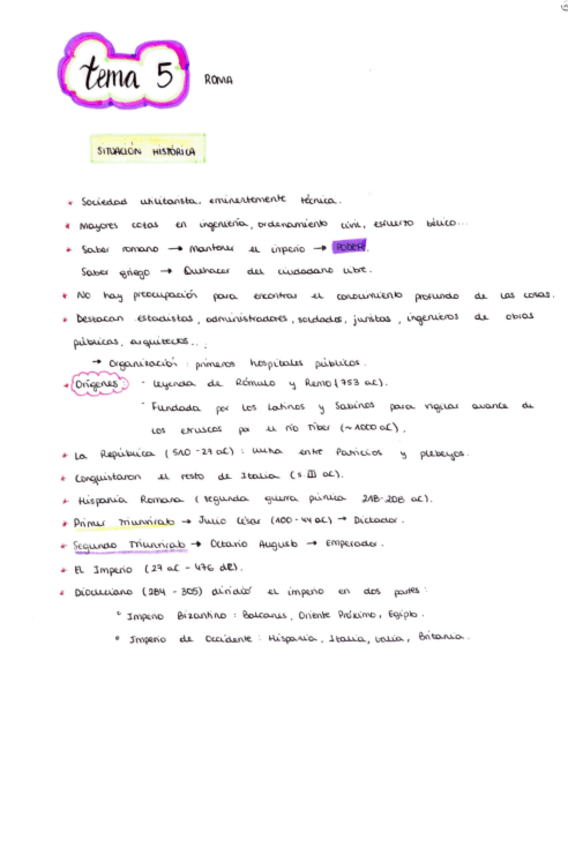 tema 5 ROMA
SITUACIÓN HISTÓRICA
* Sociedad utilitarista, eminentemente técnica.
* Mayores cotas en ingeniería, ordenamiento civil, esfuerzo bélico...
* Saber romano → Mantener el imperio → PODER.
Saber griego → Quehacer del ciudadano libre.
* No hay preocupación para encontrar el conocimiento profundo de las cosas.
* Destacan estadistas, administradores, soldados, juristas, ingenieros de obras
públicas, arquitectos...;
→ Organización: primeros hospitales públicos.
* Orígenes: - Leyenda de Rómulo y Remo (753 aC).
- Fundada por los Latinos y Sabinos para vigilar avance de
los etruscos por el río Tiber (~1000 aC).
* La República (510-27 aC): lucha entre Patricios y plebeyos.
* Conquistaron el resto de Italia (s. III aC).
* Hispania Romana (segunda guerra púnica 218-208 aC).
* Primer Triunvirato → Julio César (100-44 aC) → Dictador.
* Segundo Triunvirato → Octavio Augusto → Emperador.
* El Imperio (27 aC - 476 dC).
* Diocleciano (284 - 305) dividió el imperio en dos partes:
° Imperio Bizantino: Balcanes, Oriente Próximo, Egipto.
° Imperio de Occidente: Hispania, Italia, Galia, Britania.